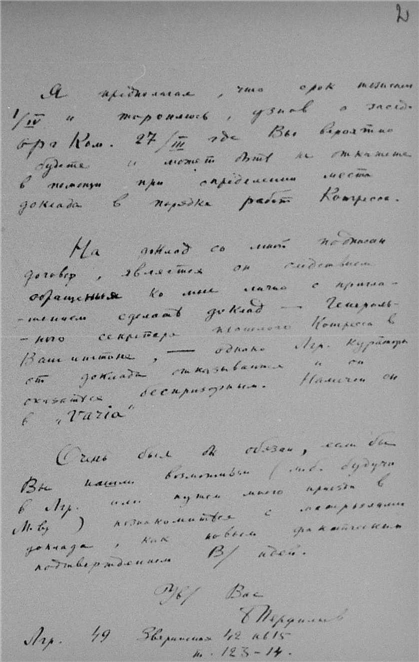 2
Я предполагал, что срок тезисам
1/IV и тороплюсь, узнав о засед.
Орг Ком. 27/III где Вы вероятно
будете и может быть не откажете
в помощи при определении места
доклада в порядке работ Конгресса.
На доклад со мной подписан
договор, является он следствием
обращенья ко мне лично с пригла-
шением сделать доклад — Генераль-
ного секретаря прошлого Конгресса в
Вашингтоне, — однако Лгр. куратора
от доклада отказывается и он
оказался беспризорным. Намечен он
в "Varia"
Очень был бы обязан, если бы
Вы нашли возможным (либо будучи
в Лгр. или путем моего приезда в
Мкву) познакомиться с материалами
доклада, как новым фактическим
подтверждением В/ идей.
Ув/ Вас
Лгр. 49 Зверинская 42 кв 15
т. 123-14.